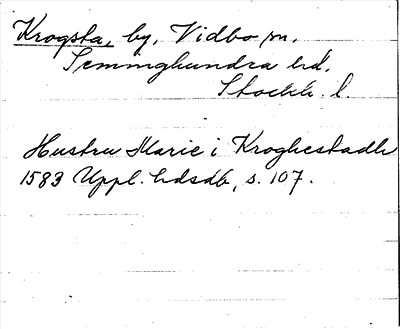 Krogsta, by, Vidbo sn.
Semminghundra hd.
Stockh. l.
Hustru Marie i Kroghestadh
1583 Uppl. hdsdb, s. 107.